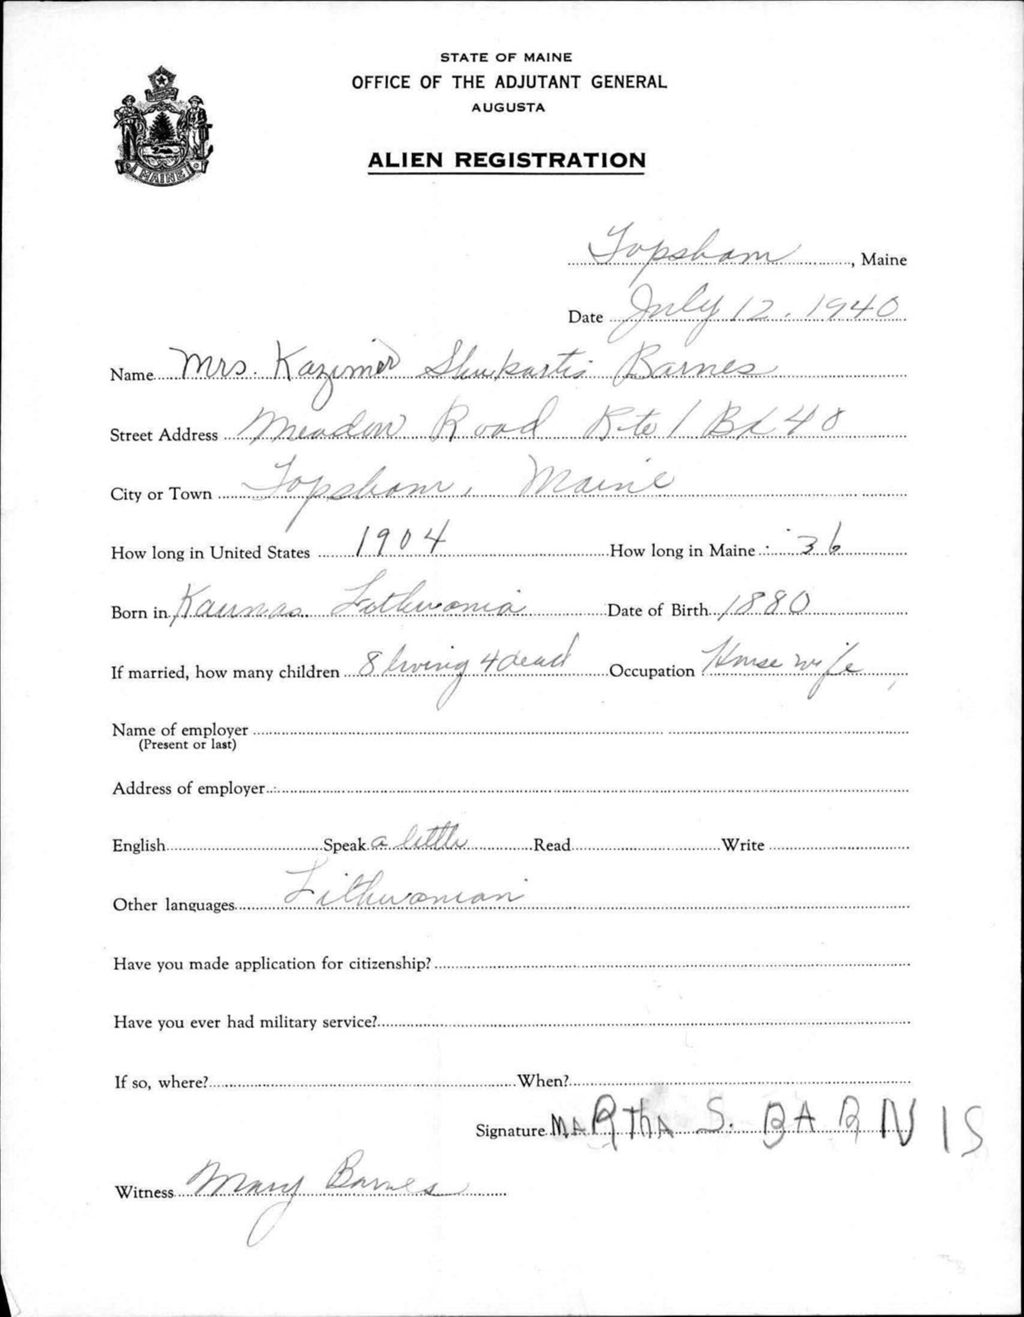 STATE OF MAINE
OFFICE OF THE ADJUTANT GENERAL
AUGUSTA
MAINE
ALIEN REGISTRATION
Topsham, Maine
Date July 12, 1940
Name Mrs. Kazimer Shukartis Barnes
Street Address Meadow Road Rte 1 Bx 48
City or Town Topsham, Maine
How long in United States 1904 How long in Maine 36
Born in Kaunas Lithuania Date of Birth 1880
If married, how many children 8 living 4 dead Occupation House wife
Name of employer
(Present or last)
Address of employer
English Speak a little Read Write
Other languages Lithuanian
Have you made application for citizenship?
Have you ever had military service?
If so, where? When?
Signature MARThA S. BARNIS
Witness Mary Barnes